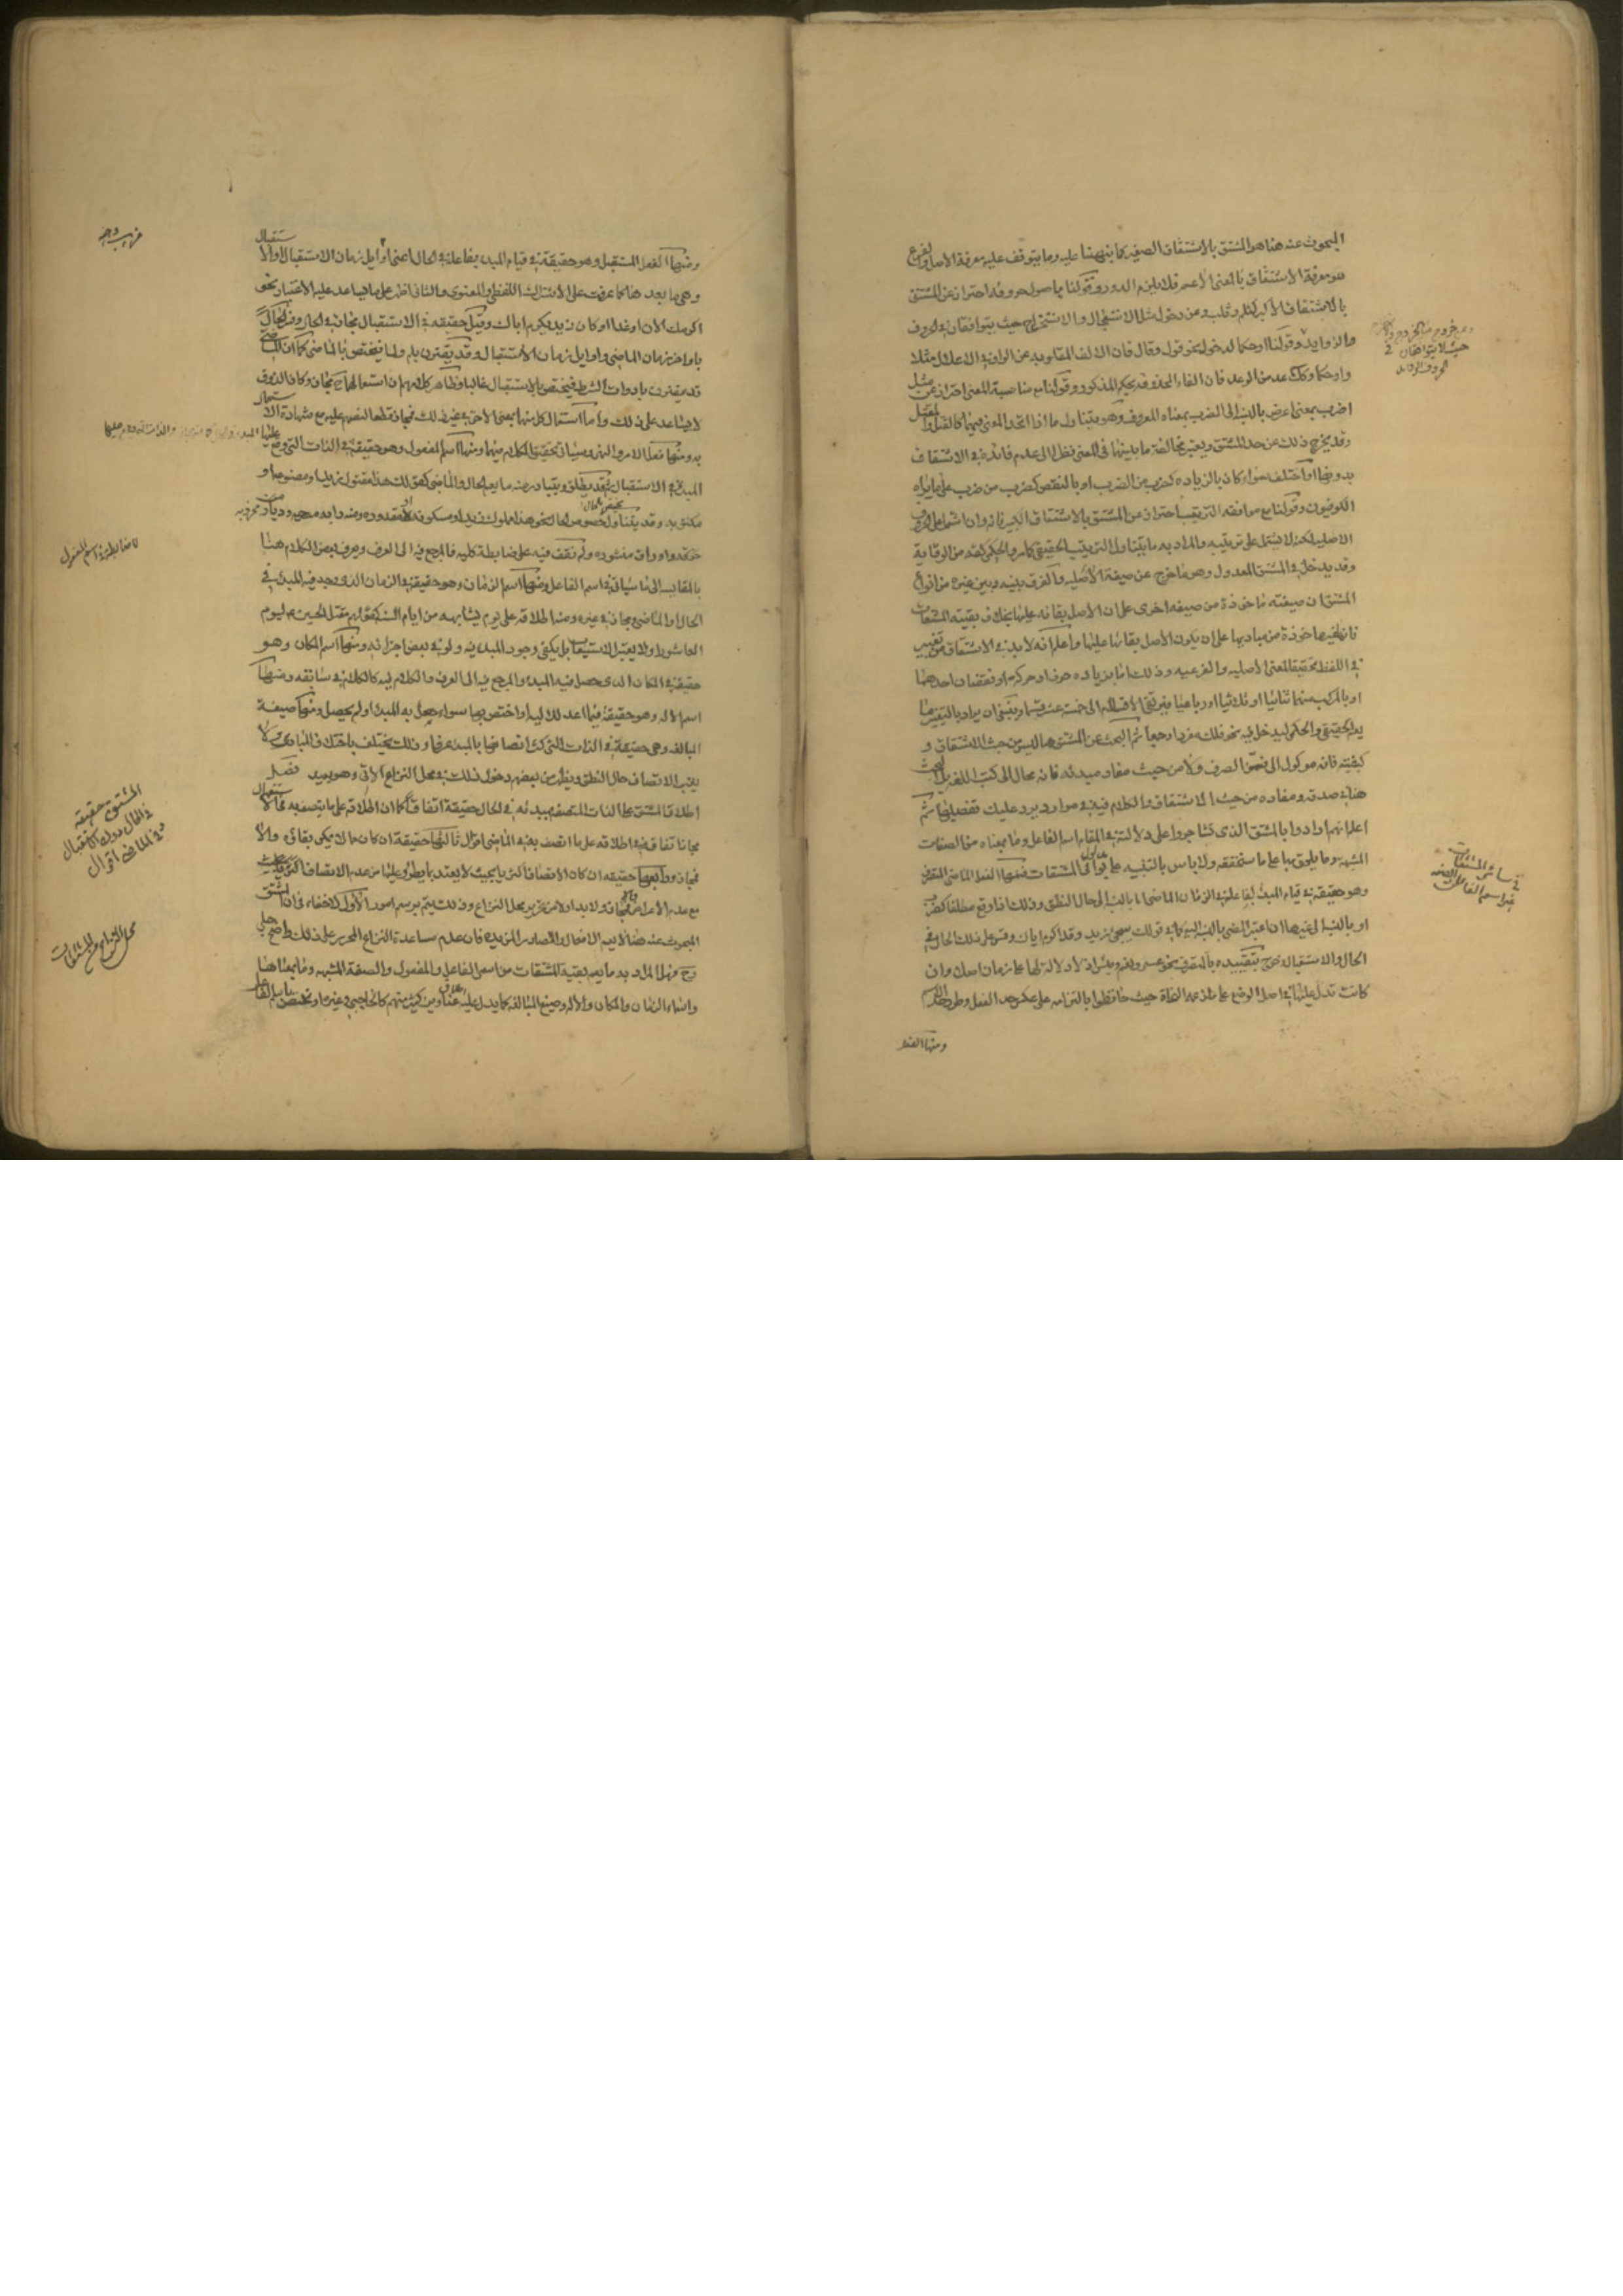 المبحوث عنه هنا هو المشتق بالاشتقاق الصغير كما نبهنا عليه وما يتوقف عليه معرفة الاصل والفرع
هو معرفة الاشتقاق بالمعنى الاعم فلا يلزم الدور وقولنا باصول حروفه احتراز عن المشتق
بالاشتقاق الاكبر كثلم وثلب ومن دخول مثل الاستعجال والاستخراج حيث يتوافقان في الحروف
والزوايد وقولنا او حكما لدخول نحو قول وقال فان الالف المقلوبة عن الواو في الاعلال مثلا
واو حكما وكذلك عد من الوعد فان الفاء المحذوفة بحكم المذكور وقولنا مع مناسبة المعنى احتراز عن مثل
اضرب بمعنى اعرض بالنسبة الى الضرب بمعناه المعروف وهو يتناول ما اذا اتحد المعنى فيهما كالقتل والمقتل
وقد يخرج ذلك عن حد المشتق ويعتبر مخالفة ما بينهما في المعنى نظرا الى عدم فائدة في الاشتقاق
بدونها او اختلف سواء كان بالزياده كضرب من الضرب او بالنقص كضرب من ضرب على ما يراه
الكوفيون وقولنا مع موافقة الترتيب احتراز عن المشتق بالاشتقاق الكبير فانه وان اشتمل على الحروف
الاصلية لكنه لا يشتمل على ترتيبه والمراد به ما يتناول الترتيب الحقيقي كما مر والحكمي كقه من الوقاية
وقد يدخل في المشتق المعدول وهو ما خرج عن صيغته الاصلية والفرق بينه وبين غيره من انواع
المشتق ان صيغته ماخوذة من صيغة اخرى على ان الاصل بقائه عليها بخلاف بقية المشتقات
فانها صيغها ماخوذة من مباديها على ان يكون الاصل بقائها عليها واعلم انه لا بد في الاشتقاق من تغيير
في اللفظ تحقيقا لمعنى الاصليه والفرعيه وذلك اما بزيادة حرف او حركة او نقصان احدهما
او بالمركب منهما ثنائيا او ثلاثيا او رباعيا فيرتقي الاقسام الى خمسة عشر قسما وينبغي ان يراد بالتغيير ما
يعم الحقيقي والحكمي ليدخل فيه نحو فلك مفردا وجمعا ثم البحث عن المشتق هنا ليس من حيث الاشتقاق و
كيفيته فانه موكول الى فن الصرف ولا من حيث مفاد مبدئه فانه محال الى كتب اللغة بل البحث
هنا في صدقه ومفاده من حيث الاشتقاق والكلام فيه في موارد يرد عليك تفصيلها ثم
اعلم انهم ارادوا بالمشتق الذي تشاجروا على دلالته في المقام اسم الفاعل وما بمعناه من الصفات
المشبهة وما يلحق بها على ما سنحققه ولا باس بالتنبيه على مداليل باقي المشتقات فمنها الفعل الماضي المتصرف
وهو حقيقة في قيام المبدء بفاعله في الزمان الماضي اما بالنسبة الى حال النطق وذلك اذا وقع مطلقا كضرب
او بالنسبة الى غيرها ان اعتبر المضي بالنسبة اليه كما في قولك سيجئ زيد وقد اكرم اباك وقس على ذلك الحال في
الحال والاستقبال وخرج بتقييده بالمتصرف نحو عسى ونعم وبئس اذ لا دلالة لها على زمان اصلا وان
كانت تدل عليه في اصل الوضع على ما ذكره النحاة حيث حافظوا بالتزامه على عكس حد الفعل وطرد حد الاسم
ومنها الفعل
حيث لا يتوافقان في
الحروف الزائدة
في سائر المشتقات
غير اسم الفاعل والصفة
ومنها الفعل المستقبل وهو حقيقة في قيام المبدء بفاعله في الحال اعني اوايل زمان الاستقبال او الاستقبال
وهي ما بعد هذا كما عرفت على الاشتراك اللفظي او المعنوي والثاني اظهر على ما يساعد عليه الاعتبار نحو
اكرمك الان او غدا او كان زيد يكرم اباك وقيل حقيقة في الاستقبال مجاز في الحال وفسر الحال
باواخر زمان الماضي واوايل زمان الاستقبال وقد يقترن بلم ولما فيختص بالماضي كما ان الماضي
قد يقترن بادوات الشرط فيختص بالاستقبال غالبا وظاهر كلامهم ان استعمالهما ح مجاز وكان الذوق
لا يساعد على ذلك واما استعمال كل منهما بمعنى الاخر في غير ذلك فمجاز قطعا لنصهم عليه مع شهادة الاستعمال
به ومنها فعلا الامر والنهي وسياتي تحقيق الكلام فيهما ومنها اسم المفعول وهو حقيقة في الذات التي وقع عليها المبدء
المبدء في الاستقبال ثم قد يطلق ويتبادر منه ما يعم الحال والماضي كقولك هذا مقتول زيد او مصنوعه او
مكتوبه وقد يتناول خصوص الحال نحو هذا مملوك زيد او مسكونه او مقدوره
منه دراهم او اوراق منثورة ولم نقف فيه على ضابطة كليه فالمرجع فيه الى العرف ويعرف بعض الكلام هنا
بالمقايسه الى ما سياتي في اسم الفاعل ومنها اسم الزمان وهو حقيقة في الزمان الذي وجد فيه المبدء في
الحال او الماضي ومجاز في غيره ومنه اطلاقه على يوم يشابهه من ايام السنة كقولهم مقتل الحسين ع ليوم
العاشورا ولا يعتبر الاستيعاب بل يكفي وجود المبدء فيه ولو في بعض اجزائه ومنها اسم المكان وهو
حقيقة في المكان الذي حصل فيه المبدء والمرجع فيه الى العرف والكلام فيه كالكلام في سابقه ومنها
اسم الاله وهو حقيقة فيما اعد لذلك او اختص بها سواء حصل به المبدء او لم يحصل ومنها صيغة
المبالغه وهي حقيقة في الذات التي كثر اتصافها بالمبدء عرفا وذلك يختلف باختلاف المبادي ولا
يعتبر الاتصاف حال النطق ويظهر من بعضهم دخول ذلك في محل النزاع الاتي وهو بعيد فصل
اطلاق المشتق على الذات المتصفة بمبدئه في الحال حقيقة اتفاقا كما ان اطلاقه على ما يتصف به في الاستقبال
مجاز اتفاقا وفي اطلاقه على ما اتصف به في الماضي اقوال ثالثها حقيقة ان كان مما لا يمكن بقائه والا
فمجاز ورابعها حقيقة ان كان الاتصاف اكثريا بحيث لا يعتد بما يطرء عليها من عدم الاتصاف
مع عدم الاعراض والا فمجاز ولا بد اولا من تحرير محل النزاع وذلك يتم برسم امور الاول لا خفاء في ان المشتق
المبحوث عنه هنا لا يعم الافعال والمصادر المزيدة فان عدم مساعدة النزاع المحرر على ذلك واضح جلي
وح فهل المراد به ما يعم بقية المشتقات من اسمي الفاعل والمفعول والصفة المشبهه وما بمعناها
واسماء الزمان والمكان والاله وصيغ المبالغه كما يدل عليه عناوين كثير منهم كالحاجبي وغيره او يختص باسم الفاعل
لا ضابطة في اسم المفعول
المشتق حقيقة
في الحال دون الاستقبال
وفي الماضي اقوال
محل النزاع في المشتقات